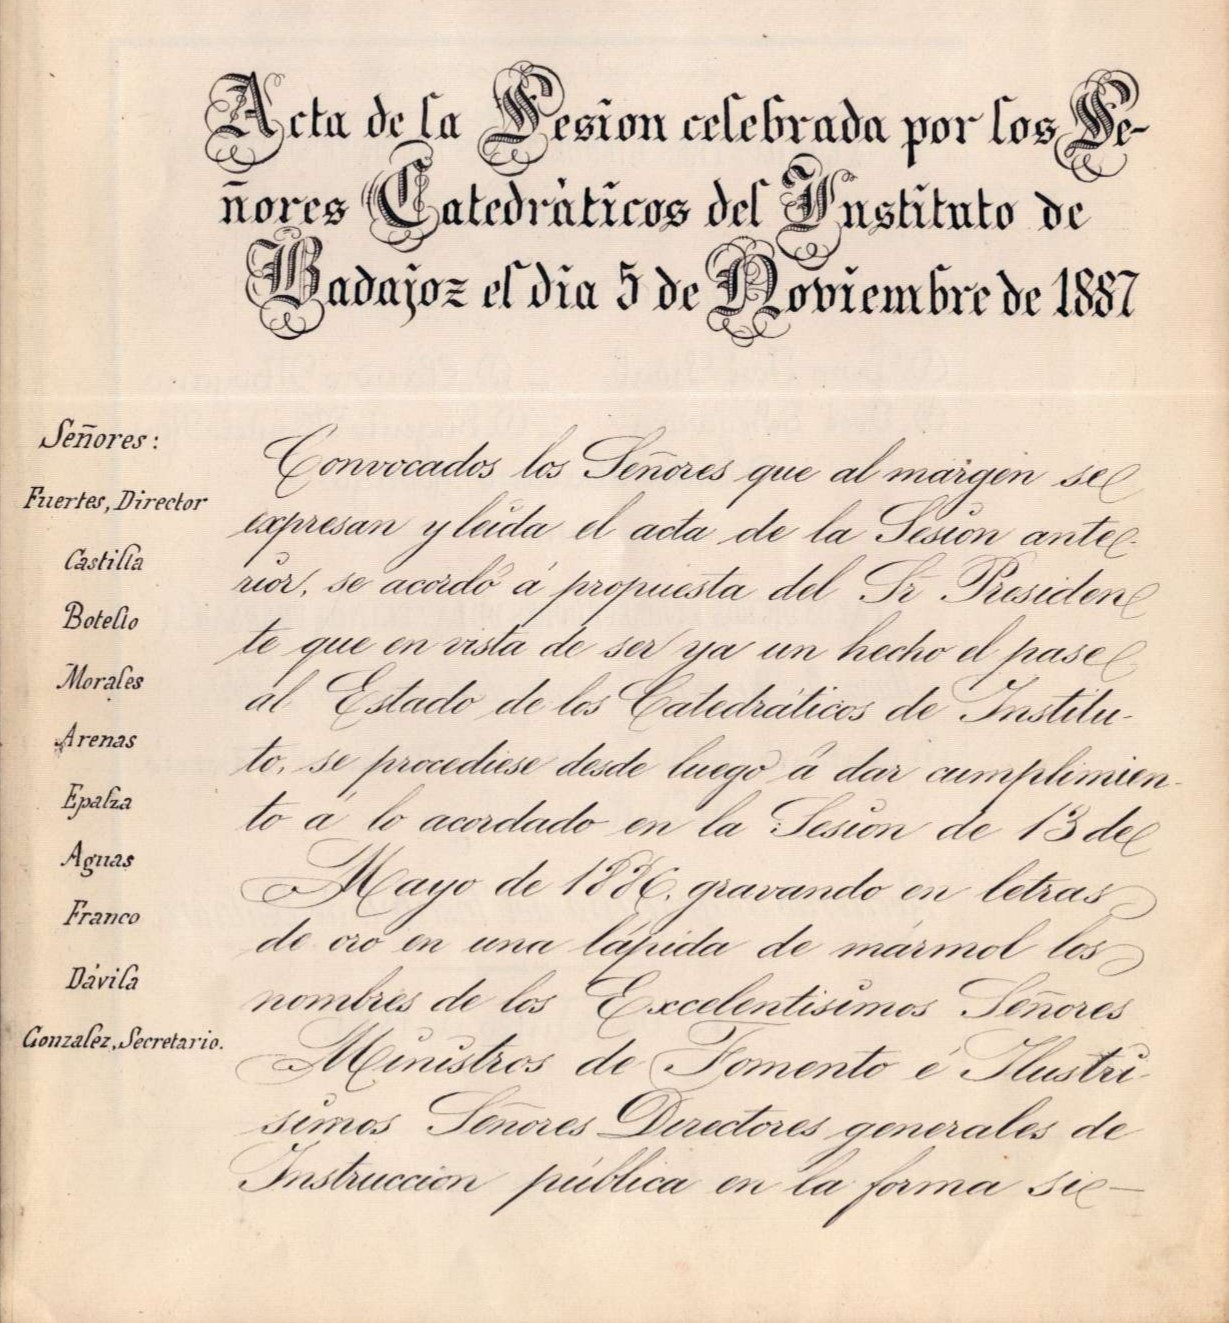 Acta de la Sesion celebrada por los Se-
ñores Catedráticos del Instituto de
Badajoz el dia 5 de Noviembre de 1887
Señores:
Fuertes, Director
Castilla
Botello
Morales
Arenas
Epalza
Aguas
Franco
Dávila
Gonzalez, Secretario.
Convocados los Señores que al márgen se
expresan y leida el acta de la Sesion ante-
rior, se acordó á propuesta del Sr. Presiden
te que en vista de ser ya un hecho el pase
al Estado de los Catedráticos de Institu-
to, se procediese desde luego á dar cumplimien-
to á lo acordado en la Sesion de 13 de
Mayo de 1886, gravando en letras
de oro en una lápida de mármol los
nombres de los Excelentisimos Señores
Ministros de Fomento é Ilustri-
simos Señores Directores generales de
Instruccion pública en la forma si-